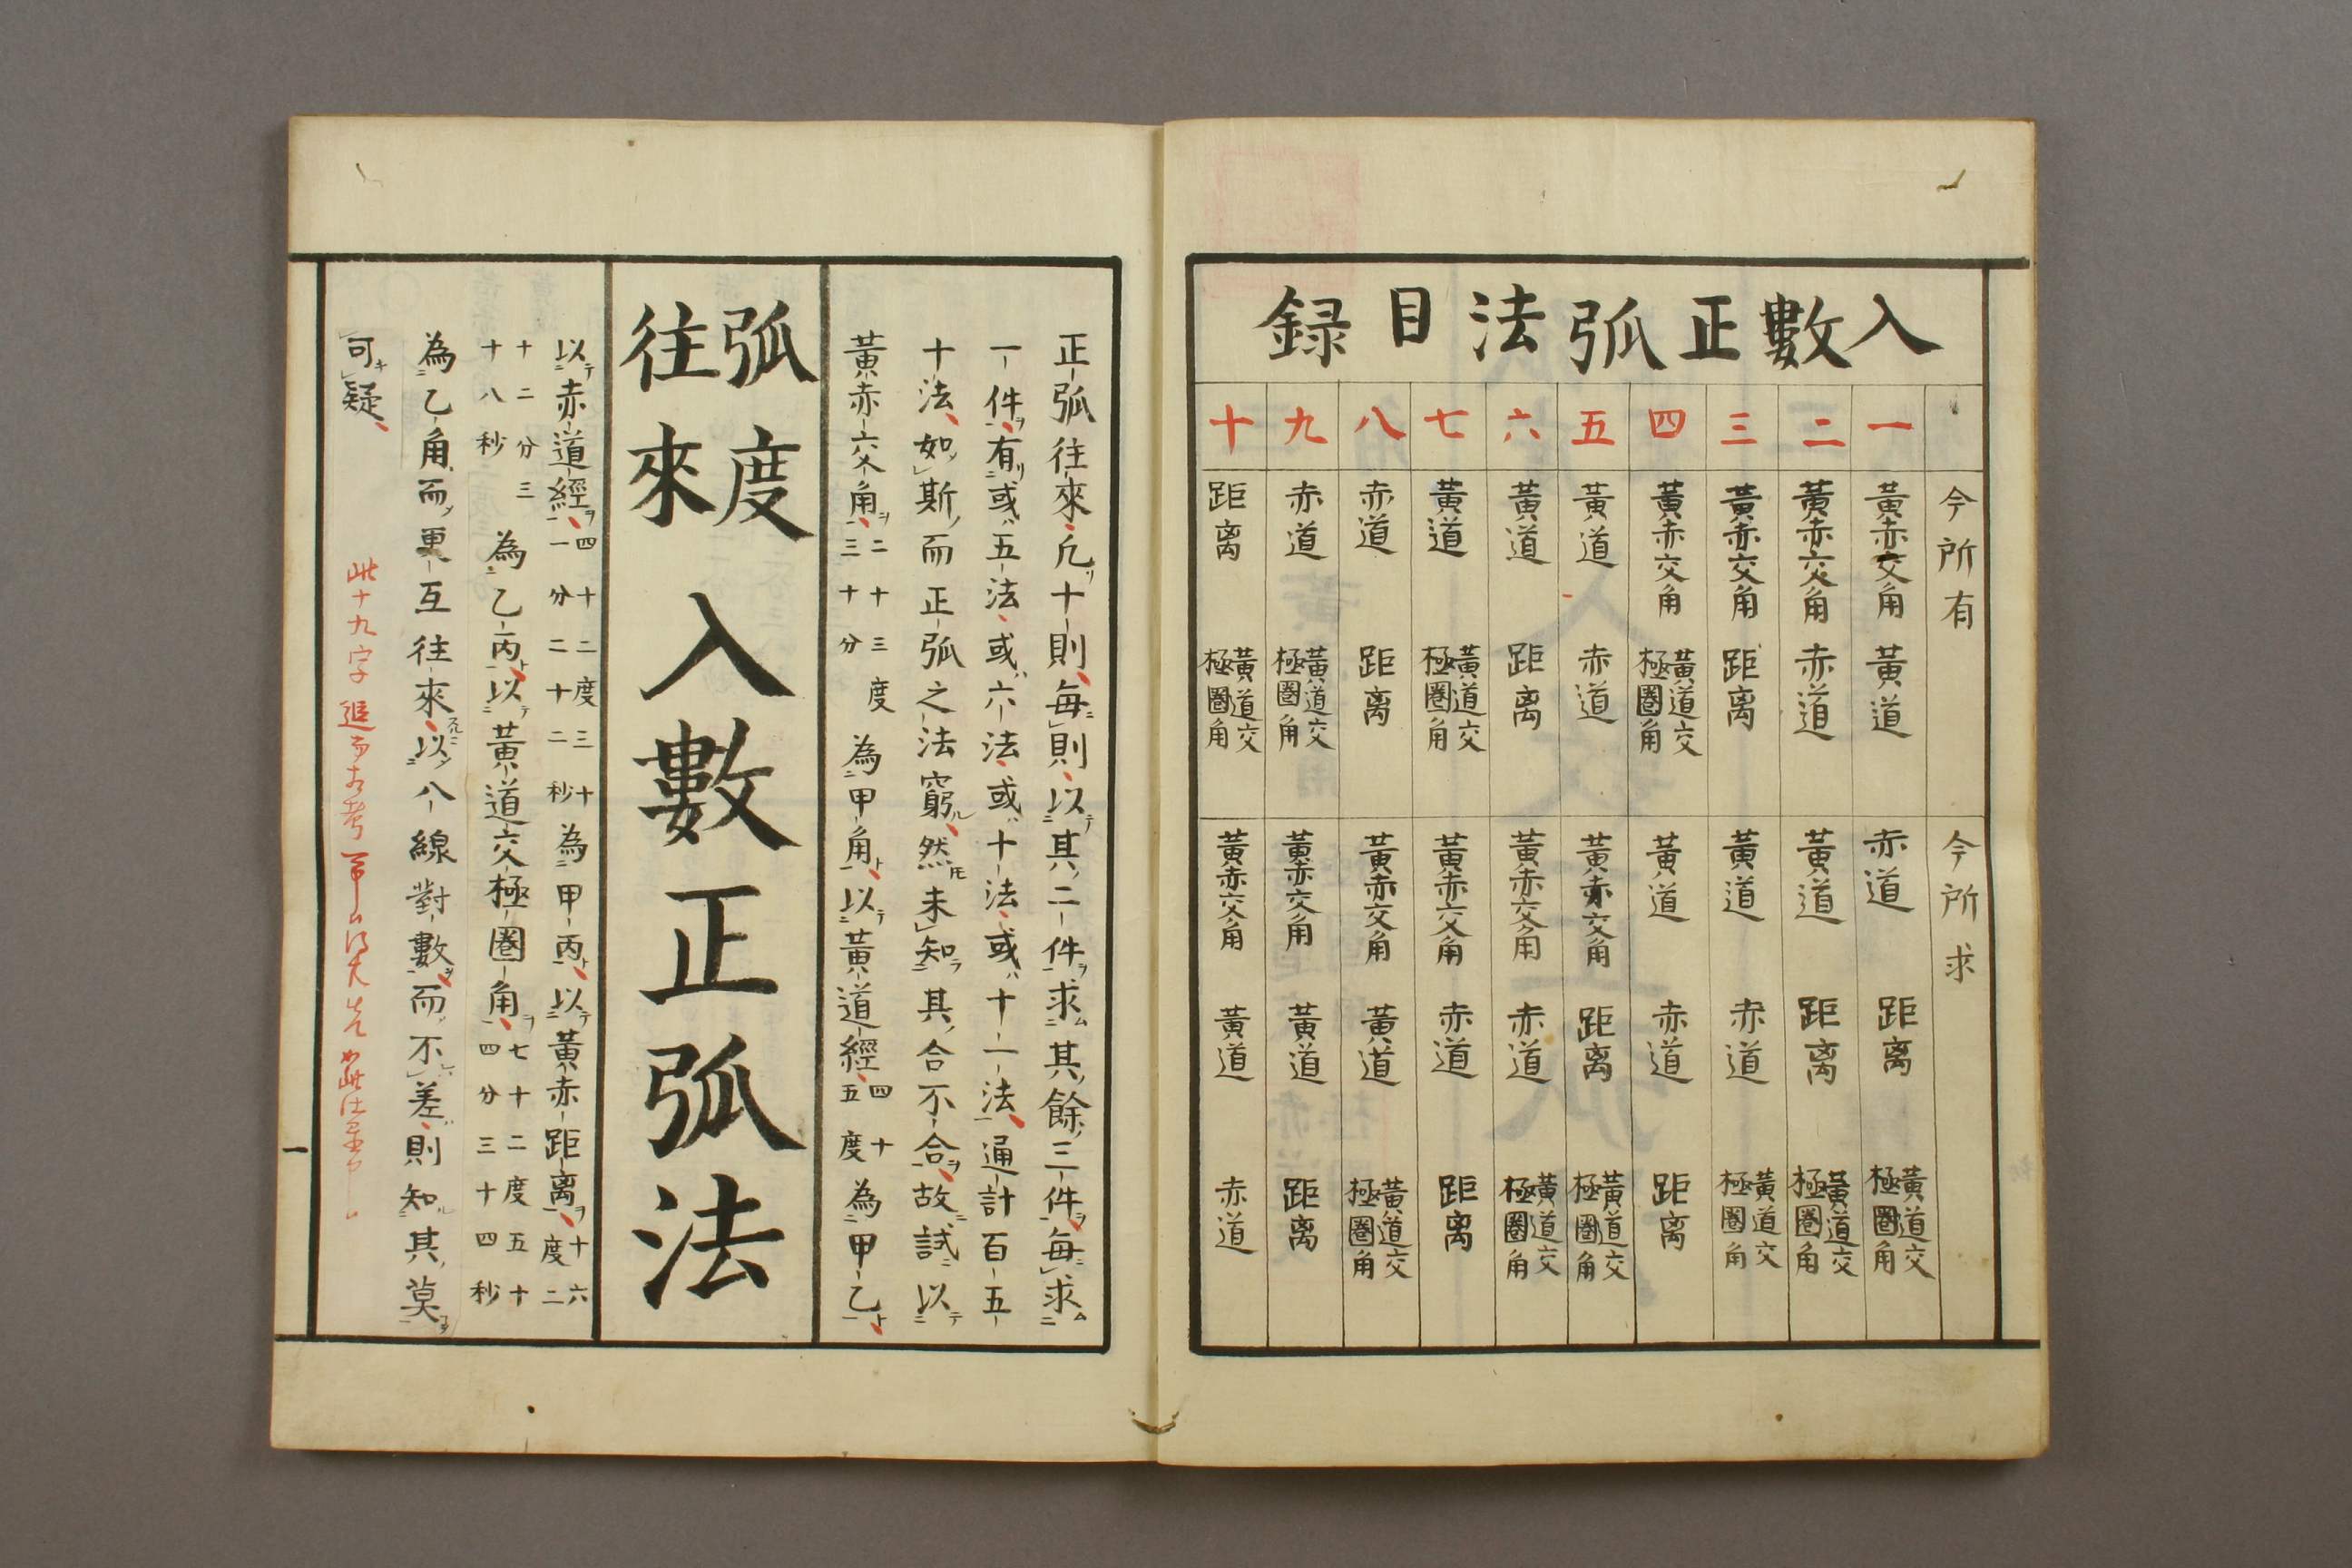 入數正弧法目録
今所有 今所求
一 黃赤交角 黃道 赤道 距离 黃道交極圈角
二 黃赤交角 赤道 黃道 距离 黃道交極圈角
三 黃赤交角 距离 黃道 赤道 黃道交極圈角
四 黃赤交角 黃道交極圈角 黃道 赤道 距离
五 黃道 赤道 黃赤交角 距离 黃道交極圈角
六 黃道 距离 黃赤交角 赤道 黃道交極圈角
七 黃道 黃道交極圈角 黃赤交角 赤道 距离
八 赤道 距离 黃赤交角 黃道 黃道交極圈角
九 赤道 黃道交極圈角 黃赤交角 黃道 距离
十 距离 黃道交極圈角 黃赤交角 黃道 赤道
正弧往來凢十則毎則以其二件求其餘三件毎求
一件有或五法或六法或十法或十一法通計百五
十法如斯而正弧之法窮然未知其合不合故試以
黃赤交角二十三度三十分為甲角以黃道經四十五度為甲乙
弧度往來 入數正弧法
以赤道經四十二度三十一分二十二秒為甲丙以黃赤距离十六度二
十二分三十八秒為乙丙以黃道交極圈角七十二度五十四分三十四秒
為乙角而更互往來以八線對數而不差則知其莫
可疑
此十九字
一